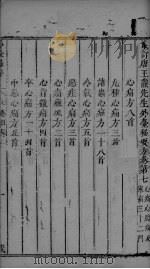 重訂唐王燾先生外臺秘要方卷第七
心痛方八首
九種心痛方三首
諸蟲心痛方一十八首
冷氣心痛方五首
惡疰心痛方三首
心痛方三首
心背徹痛方四首
卒心痛方二十四首
中惡心痛方五首